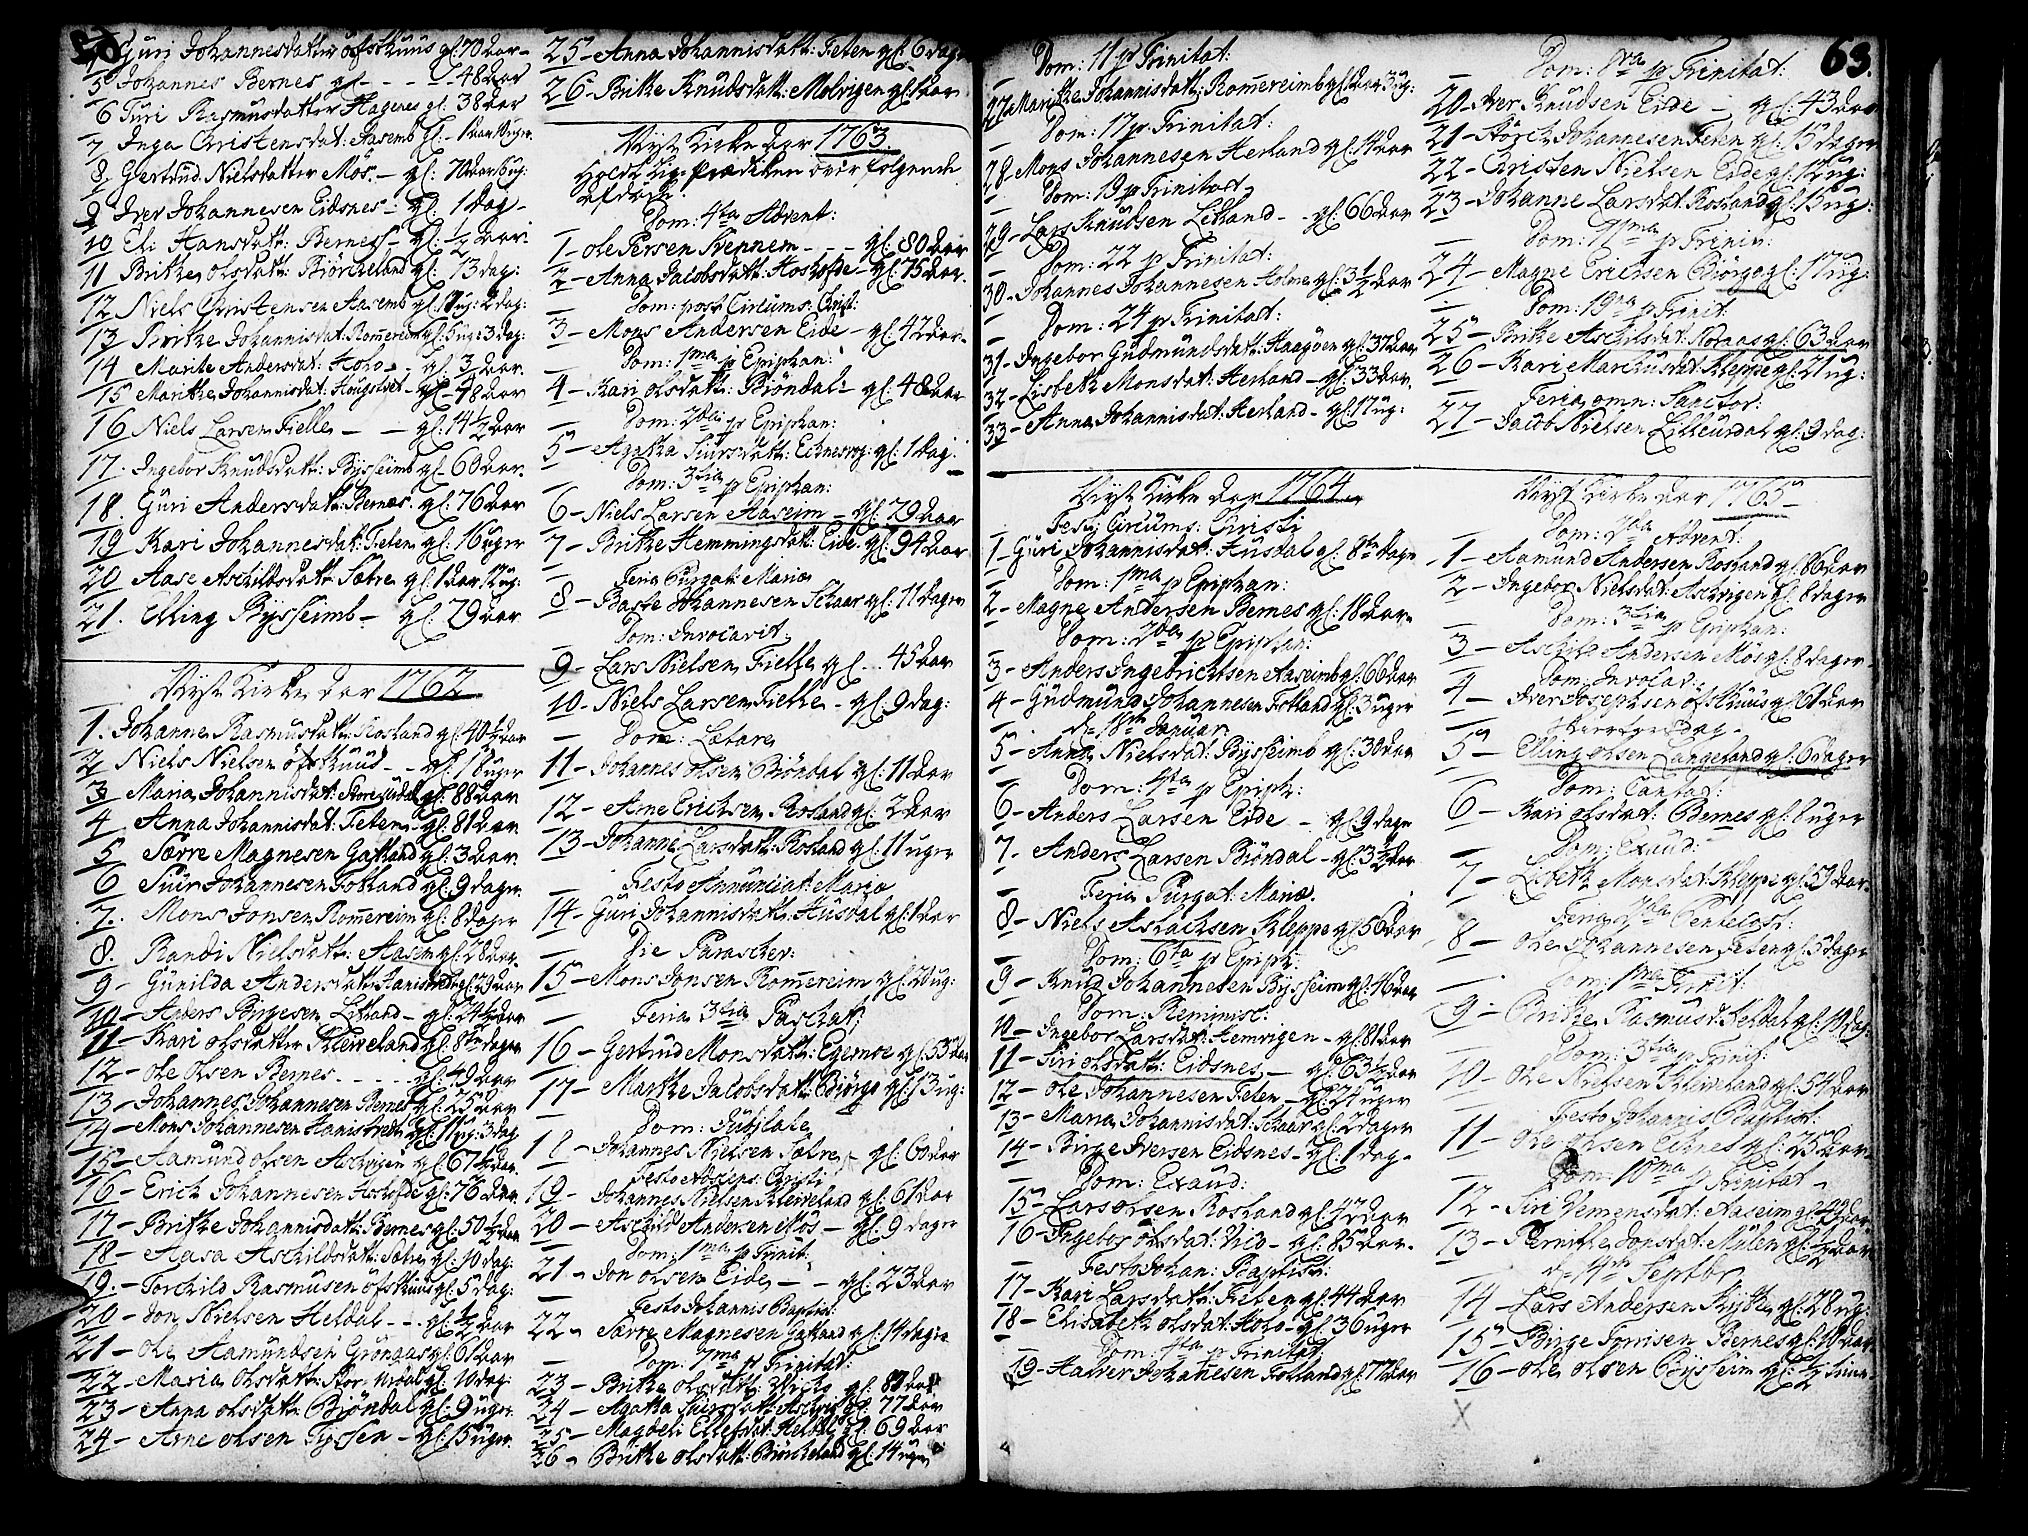 Guri Johannesdatter öfsthuus gl: 70 aar
5 Johannes Bernes gl - - - 48 aar
6 Turi Rasmusdatter Hageres gl: 38 aar
7 Inga Christensdat: Aasemb gl: 1 aar
8. Gertrud Nielsdatter Mös. - gl:
9 Iver Johannesen Eidsnes - gl: 1 dag -
10 Eli Hansdatt: Bernes - gl: ½ aar:
11 Britke olsdatt: Biörckeland gl: 13 dag:
12 Niels Christensen Aasemb gl: 2 dag:
13 Britke Johannisdat: Romereim gl: 5 ug: 3 dag:
14 Maritke Andersdat: Holo - gl: 3 aar
15 Maritke Johannisdat: gl - 48 aar
16 Niels Larsen Tielle - - gl: 14½ aar
17. Ingebor Knudsdatt: Bysseimb gl 60 aar.
18. Guri Andersdatt: Bernes. gl: 76 aar
19 Kari Johannesdat: Teten gl: 16 uger
20 Aase Aschildsdatt: Sætre gl: 1 aar 12 ug:
21. Elling Bysseimb - gl: 29 aar
Nyst Kirke aar 1762
1. Johanne Rasmusdatt: Rosland gl: 40½ aar
2 Niels Nielsen öfsthuud - - gl: 18 uger
3 Maria Johannisdat: gl: 88 aar
4 Anna Johannisdat: Teten - gl: 81 aar.
5 Særre Magnesen Gatland gl: 3 aar
6 Siur Johannesen Totland gl: 9 dager
7. Mons Jonsen Romereim gl: 8 dager
8. Randi Nielsdatt: Aasem gl: 28 aar.
9 - Gunilda Andersdatt:
10 - Anders Birgesen Litland - gl: 24½ aar
11 - Kari olsdatter Kleiveland gl: 8te dager
12 - ole olsen Bernes - - - - gl: 49 aar
13 - Johannes Johannesen Bernes gl: 25 aar
14 - Mons Johannesen gl: 11 ug: 3 dag
15 - Aamund olsen Aschvigen gl: 67½ aar.
16 - Erich Johannesen gl: 76 aar
17 - Britke Johannisdatt: Bernes gl: 50½ aar
18 - Aasa Aschildsdatt: Sætre gl: 10 dag:
19. - Torchild Rasmusen öfsthuus gl: 5 dag:
20 - Jon Nielsen Heldal - - gl: ½ aar
21 - ole Aamundsen Gröngas gl: 61 aar
22 - Maria olsdatt: gl: 10 dag:
23 - Anna olsdatt: Biöndal gl: 9 uger
24 - Arne olsen Tyssen - gl: 15 uger.
25 - Anna Johannisdatt: Teten gl: 6 dage
26 - Britke Knudsdatt: Molvigen gl: aar
Nyst Kirke aar 1763.
Holdt Lig Prædiken over folgende
afdöde.
Dom: 4ta Advent:
1 - ole Persen Kvennem - - - gl: 80 aar
2 - Anna Jacobsdatt: - gl: 75 aar.
Dom: post Circums: Christ:
3 - Mons Andersen Eide - gl: 42 aar.
Dom: 1ma p Epiphan:
4 - Kari olsdatt: Biöndal: - gl: 48 aar
Dom: 2da p Epiphan:
5 - Agatka Siursdatt: gl: 1 dag.
Dom: 3tia p Epiphan:
6 - Niels Larsen Aaseim - gl: 29 aar
7 - Britke Hemmingsdatt: Eide. gl: 94 aar
Feria Purgat: Mariæ
8 - Baste Johannesen Schaar gl: 11 dager
Dom: Invocavit:
9 - Lars Nielsen Tielle gl - - 45 aar
10 - Niels Larsen Tielle - gl: 9 dag:
Dom: Lætare
11 - Johannes olsen Biöndal gl: 11 aar
12 - Arne Erichsen Rosland gl: 2 aar
13 - Johanne Larsdatt: Rosland gl: 11 uger
Festo Annunciat: Mariæ
14 - Guri Johannisdatt: Husdal gl: 1 aar
Die Parascev:
15 - Mons Jonsen Romereim gl: 20 ug:
Feria 3tia Paschat:
16 - Gertrud Monsdatt: Egemoe gl: 53 aar
17 - Martke Jacobsdatt: Biörge gl: 13 ug:
Dom: Jubilate
18 - Johannes Nielsen Sætre - gl: 60 aar
Festo Ascens: Christi
19 - Johannes Nielsen Kleiveland gl: 61 aar
20 - Aschild Andersen Mös - gl: 9 dager
Dom: 1ma p Trinit:
21 - Jon olsen Eide - - gl: 23 aar
Festo Johannis Baptist:
22 - Særre Magnesen Gatland gl: 14 dager
Dom: 7ma p Trinitat:
23 - Britke olsdatt: gl: 80 aar
24 - Agatka Siursdatt: Aschvig gl: 77 aar
25 - Magdeli Ellefsdat: Heldal gl: 69 aar
26 - Britke olsdatt: Biörckeland gl: 14 uger
Dom: 11 p Trinitat:
27 Maritke Johannisdatt: Romereimb gl: aar 3 ug:
Dom: 17 p Trinitat:
28 Mons Johannesen Herland gl: 14 aar
Dom: 19 p Trinitat:
29 - Lars Knudsen Litland - - gl: 66 aar
Dom: 22 p Trinitat:
30 - Johannes Johannesen Holme gl: 3½ aar
Dom: 24 p Trinitat:
31 - Ingebor Gudmundsdatt: Haagöen gl: 37 aar
32 - Lisbeth Monsdat: Herland - gl: 33 aar.
33 - Anna Johannisdat: Herland - gl: 17 ug:
Nyst Kirke aar 1764
Fest: Circums: Christi
1 - Guri Johannisdat: Husdal gl: 8te dage
Dom: 1ma p Epiphan:
2 - Magne Andersen Bernes gl: 18 aar
Dom: 2da p Epiphan:
3 - Anders Ingebrichtsen Aaseimb gl: 66 aar
4 - Gudmund Johannesen Totland gl: 3 uger
d. 18de Januar.
5 - Anna Nielsdat: Bysseimb gl: 30 aar
Dom: 4ta p Epiph:
6 - Anders Larsen Eide - gl: 9 dage
7. Anders Larsen Biöndal - gl: 3½ aar
Feria Purgat: Mariæ.
8 - Niels Aslachsen Kleppe gl: 56 aar
Dom: 6ta p Epiph:
9 - Knud Johannesen Bysseim gl: 16 aar
Dom: Reminisc:
10 - Ingebor Larsdat: Hemvigen - gl: 81 aar
11 - Siri olsdatt: Eidsnes - gl: 63½ aar
12 - ole Johannesen Teten - gl: 21 uger
13 - Maria Johannisdat: Schaar gl: 2 dager
14 - Birge Iversen Eidsnes - gl: 1 dag -
Dom: Exaud:
15 - Lars olsen Rosland gl: 47 aar
16 - Ingebor olsdat: - gl: 85 aar.
Festo Johan: Baptist:
17 - Kari Larsdatt: Teten gl: 44 aar
18 - Elisabeth olsdat: Holo - gl: 36 uger
Dom: 4ta p Trinitat:
19 - Halver Johannesen Totland gl: 77 aar
63.
Dom: 8va p Trinitat:
20 Iver Knudsen Eide - gl: 43 aar
21 - Störck Johannesen Teten gl: 15 dager
22 - Christen Nielsen Eide gl: 12 ug:
23 - Johanne Larsdat: Rosland gl: 15 ug:
Dom: 11ma p Trinit:
24 - Magne Erichsen Biörge gl: 17 ug:
Dom: 19na p Trinit
25 - Britke Aschilsdat: gl: 63 aar
26 - Kari Marckusdat: Kleppe gl: 21 ug:
Feria omn: Sanctor:
27 - Jacob Nielsen Litleurdal gl: 9 dag:
Nyst Kirke aar 1765
Dom: 2da Advent:
1 - Aamund Andersen Rosland gl: 86 aar
2 - Ingebor Nielsdat: Aschvigen gl: 8 dager
Dom: 3tia p Epiphan:
3 - Aschild Andersen Mös gl: 8 dager.
Dom: Invocav:
4 - Iver Josephsen öfsthuus gl: 61 aar
Skiertorsdag -
5 - Elling olsen Langeland gl: 6 dager
Dom: Cantat:
6 - Kari olsdat: Bernes gl: 8 uger
Dom: Exaud:
7 - Lisbeth Monsdat: Kleppe gl: 51 aar.
Feria 2da Pentecost:
8 - ole Johannesen Teten gl: 5 dager
Dom: 1ma Trinit:
9 - Britke Rasmusd: Heldal gl: 19 dag:
Dom: 3tia p Trinit:
10 - ole Nielsen Kleiveland gl: 54 aar
Festo Johannis Baptist:
11 - ole olsen gl: 25 aar
Dom: 10ma p Trinitat -
12 - Siri Vemensdat: Aaseim gl: 49 aar
13 - Pernitke Jonsdat: Mylen gl: ½ aar
d. 14de Septbr
14 - Lars Andersen gl: 28 ug:
15 - Birge Torrisen Bernes gl: aar
16 - ole olsen Bysseim gl: ½ time
X